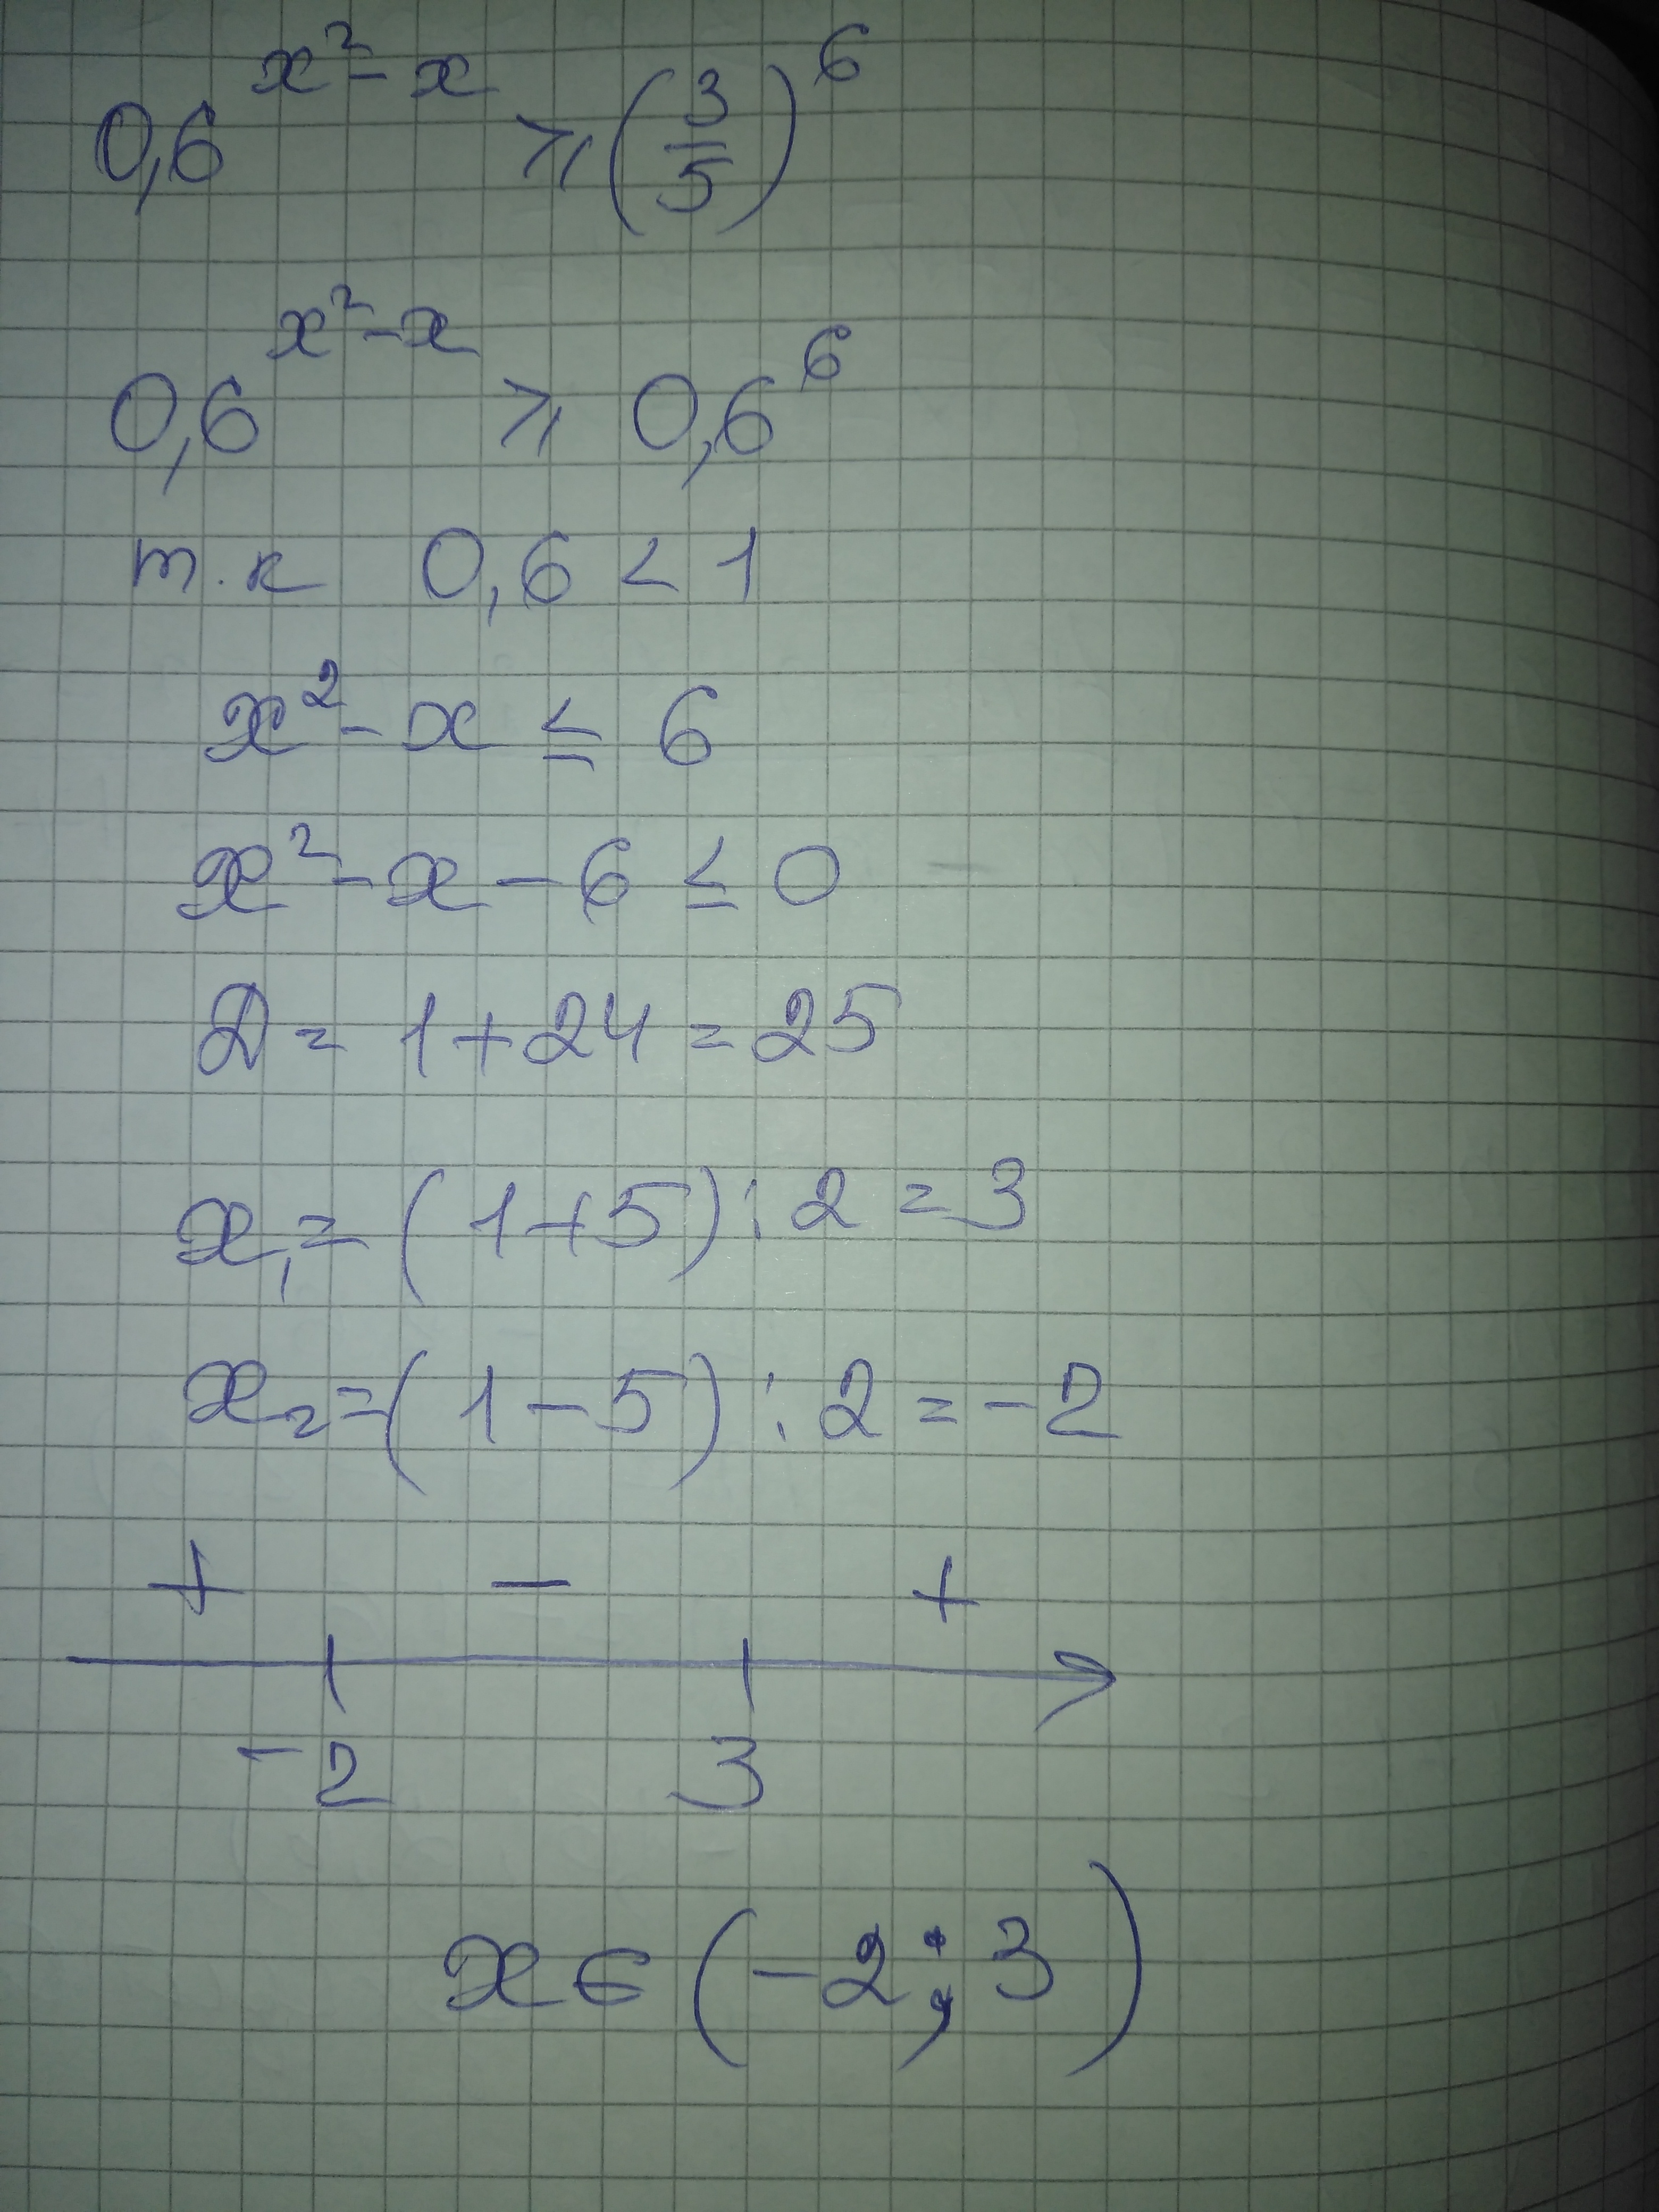 0,6^(x²-x) ⩾ (3/5)^6
0,6^(x²-x) ⩾ 0,6^6
т.к 0,6 < 1
x² - x ≤ 6
x² - x - 6 ≤ 0
D = 1 + 24 = 25
x₁ = (1+5) : 2 = 3
x₂ = (1-5) : 2 = -2
+ − +
-2 3
x ∈ (-2; 3)